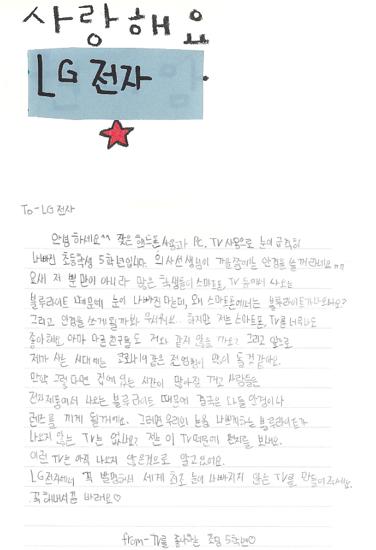 사랑해요
LG 전자
To-LG 전자
안녕하세요^^ 잦은 핸드폰 사용과 PC, TV 사용으로 눈이 급격히
나빠진 초등학생 5학년입니다. 의사선생님이 가을쯤에는 안경을 쓸 꺼라네요ㅠㅠ
요새 저 뿐만이 아니라 많은 학생들이 스마트폰, TV 등에서 나오는
블루라이트 때문에 눈이 나빠진다는데, 왜 스마트폰에서는 블루라이트가 나오나요?
그리고 안경을 쓰게 될까봐 무서워요… 하지만 저는 스마트폰, TV를 너무나도
좋아해요. 아마 다른 친구들도 저와 같지 않을까요? 그리고 앞으로
제가 사는 시대에는 코로나19같은 전염병이 많이 돌 것 같아요.
만약 그렇다면 집에 있는 시간이 많아질 거고 사람들은
전자제품에서 나오는 블루라이트 때문에 결국은 다들 안경이나
렌즈를 끼게 될거에요. 그러면 우리의 눈을 나쁘게하는 블루라이트가
나오지 않는 TV는 없나요? 저는 이 TV때문에 편지를 보내요.
이런 TV는 아직 나오지 않은것으로 알고있어요.
LG전자에서 꼭 발명해서 세계 최초 눈이 나빠지지 않는 TV를 만들어주세요.
꼭 해내시길 바래요♡
from-TV를 좋아하는 초딩 5학년♡